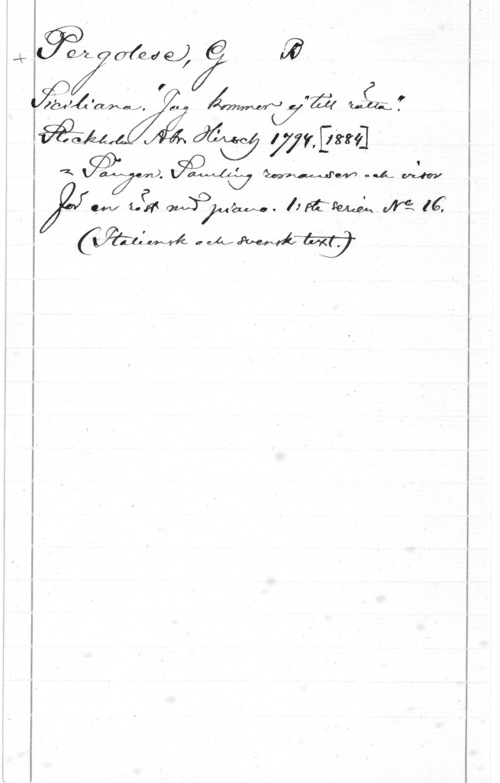 + Pergolese, G B
Siciliana. "Jag kommer ej till rätta".
Stockholm Abr Hirsch 1794. [1884]
= Sången. Samling romanser och visor
för en röst med piano. 1:sta serien No 16.
(Italiensk och svensk text.)